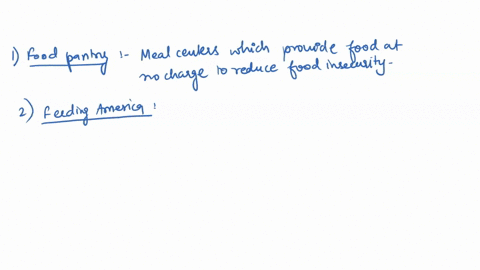 1) Food pantry :- Meal centers which provide food at
no charge to reduce food insecurity.
2) Feeding America :